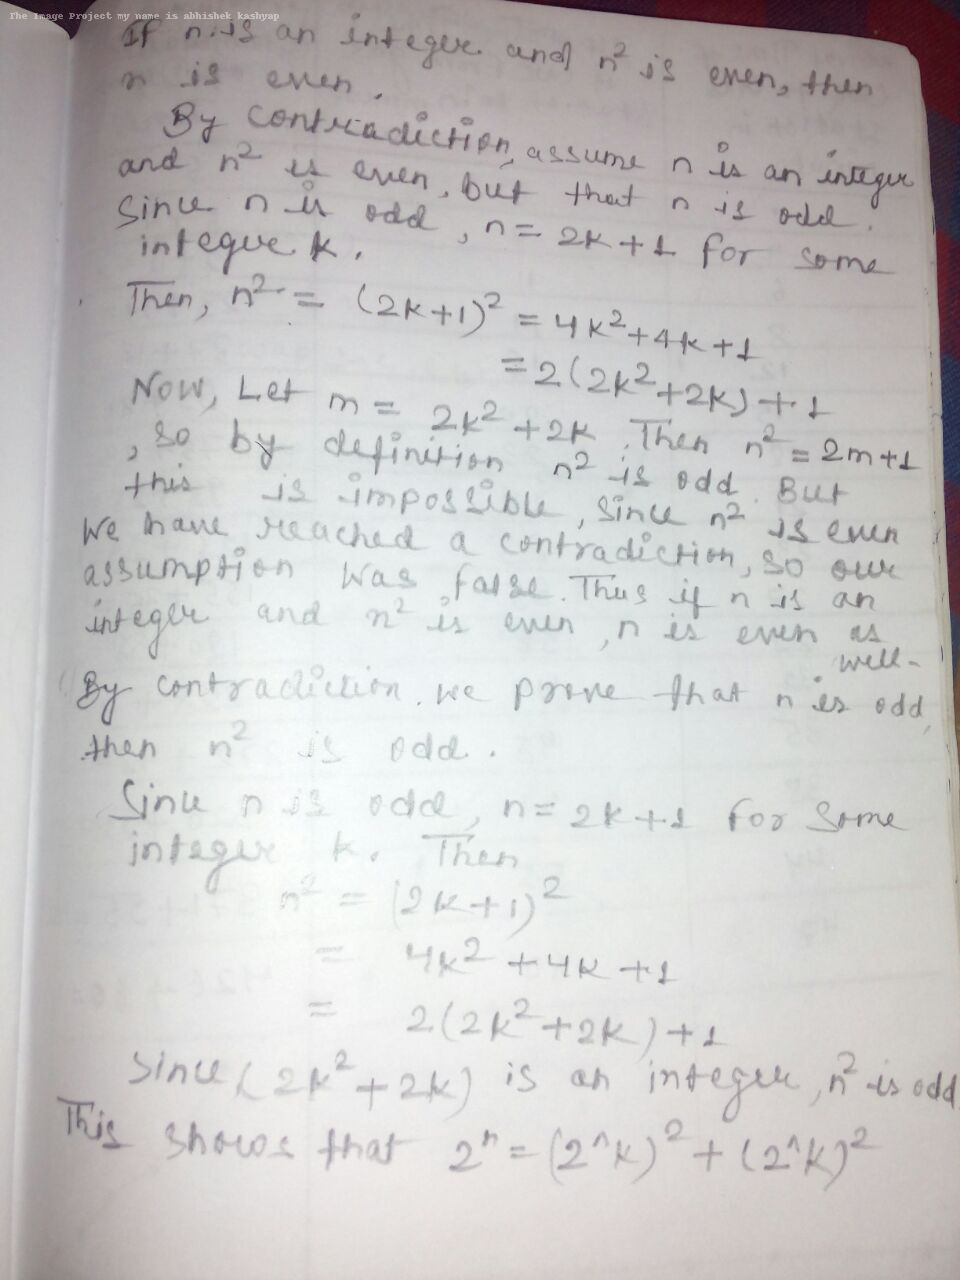 The Image Project my name is abhishek kashyap
If n is an integer and n² is even, then
n is even.
By contradiction, assume n is an integer
and n² is even, but that n is odd.
Since n is odd, n = 2k+1 for some
integer k.
Then, n² = (2k+1)² = 4k²+4k+1
= 2(2k²+2k)+1
Now, Let m = 2k²+2k. Then n² = 2m+1
, so by definition n² is odd. But
this is impossible, since n² is even
We have reached a contradiction, so our
assumption was false. Thus if n is an
integer and n² is even, n is even as
well.
By contradiction. we prove that n is odd,
then n² is odd.
Since n is odd, n = 2k+1 for some
integer k. Then
n² = (2k+1)²
= 4k²+4k+1
= 2(2k²+2k)+1
Since (2k²+2k) is an integer, n² is odd
This shows that 2ⁿ = (2^k)² + (2^k)²